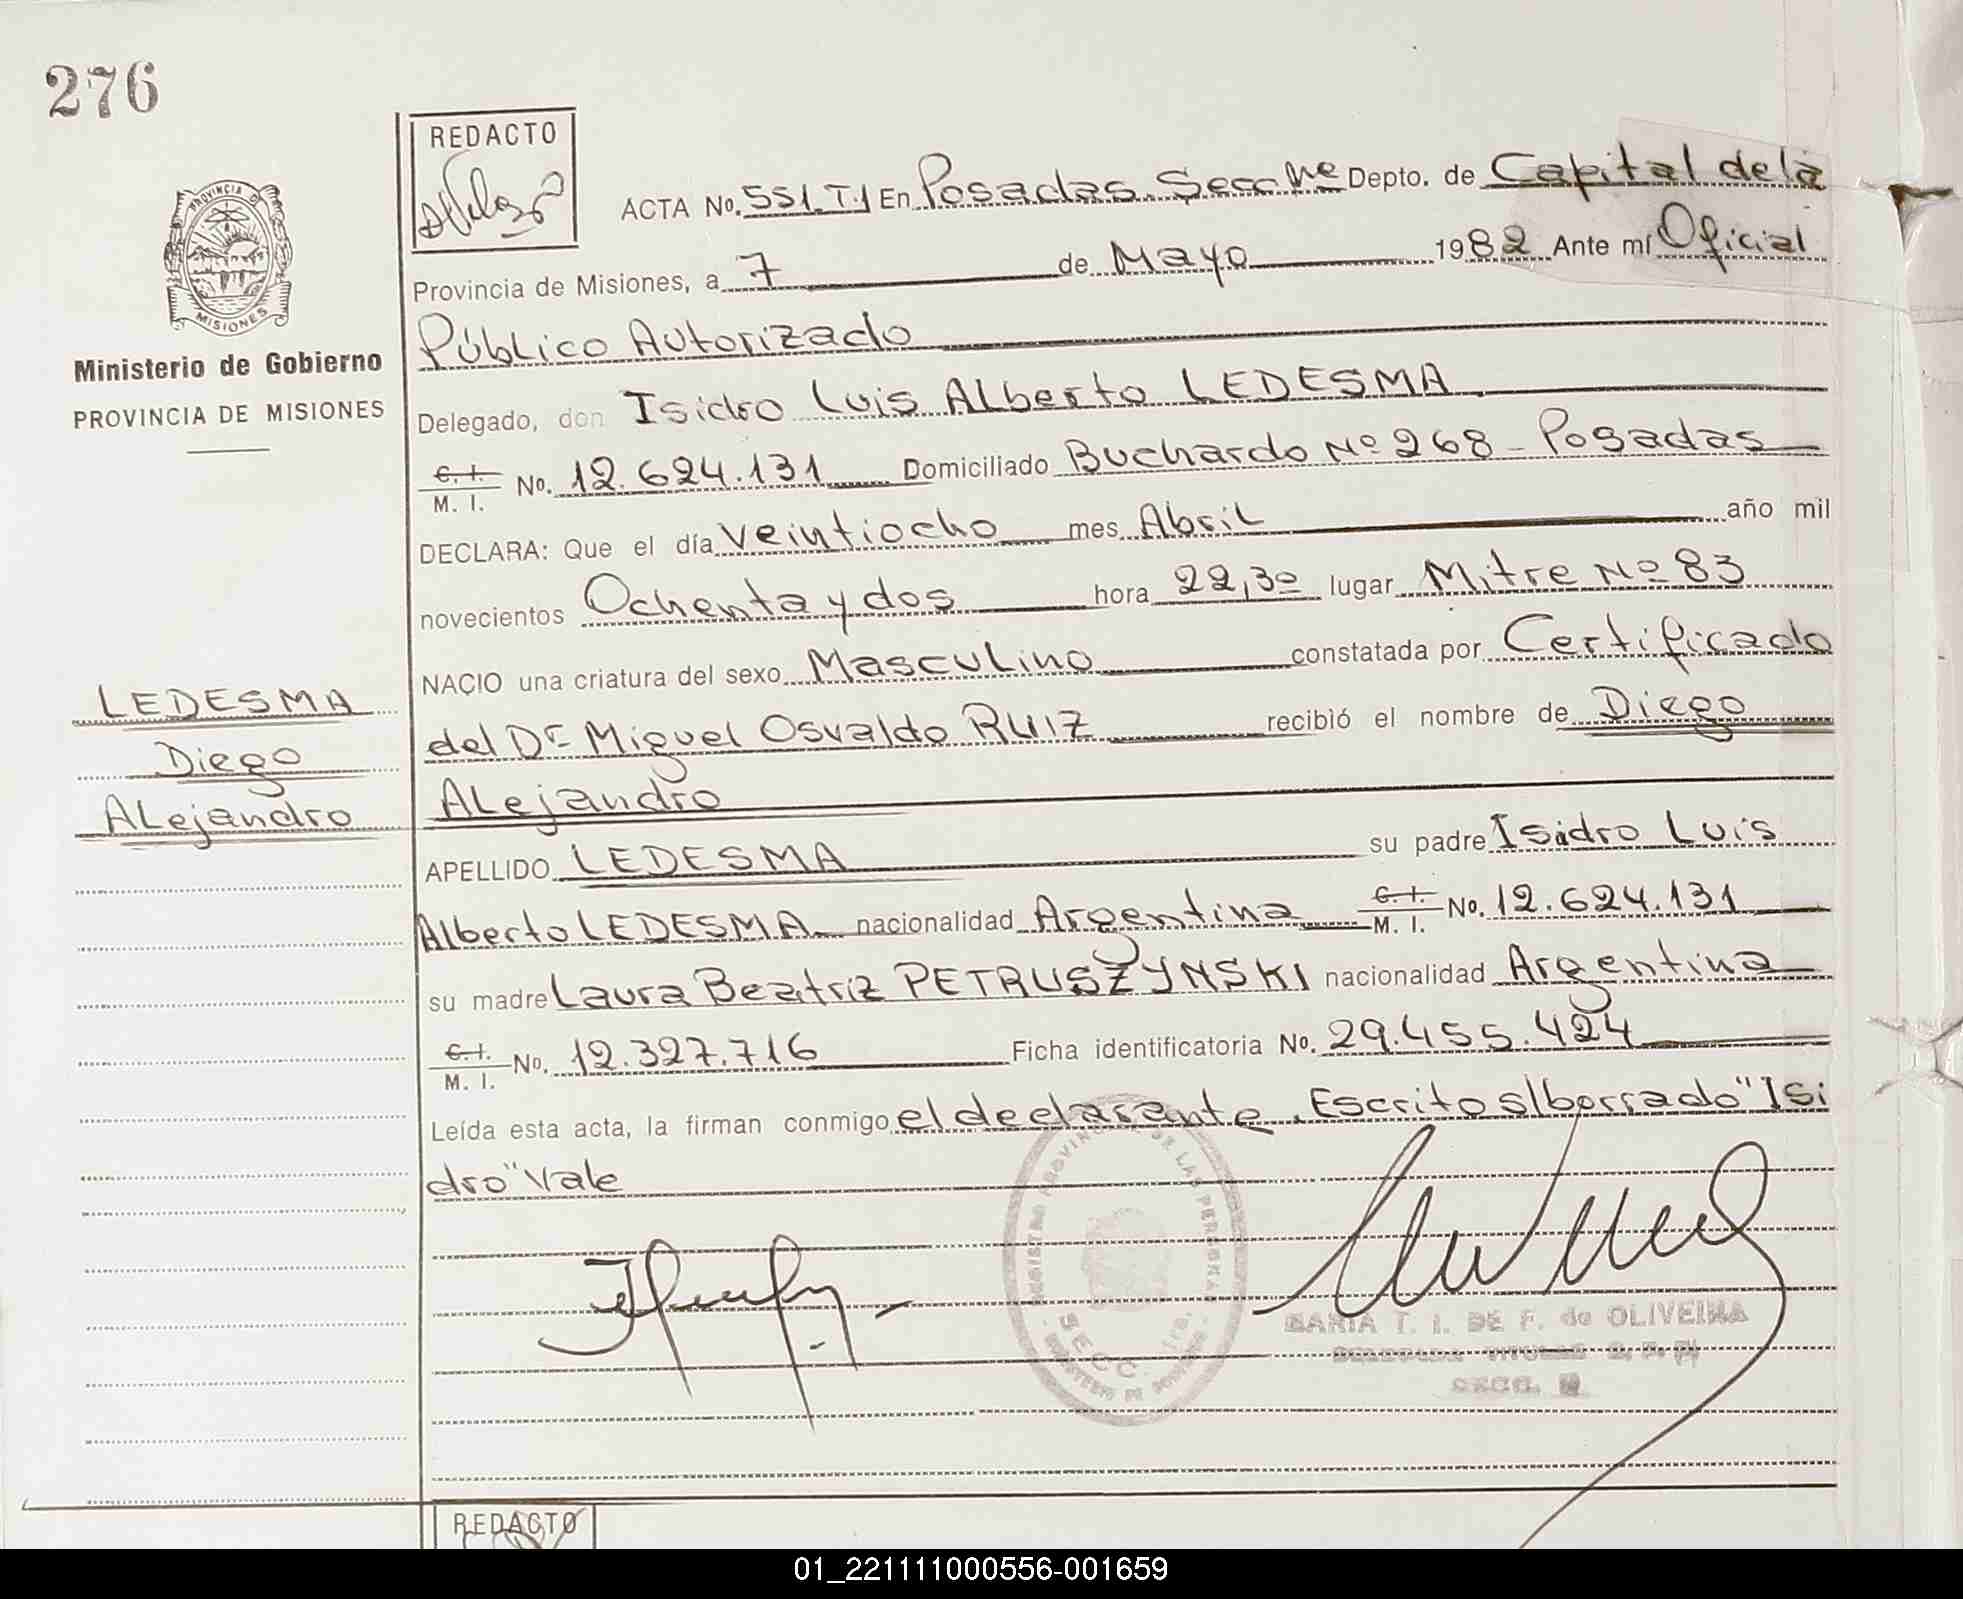 276
REDACTO
PROVINCIA DE
MISIONES
Ministerio de Gobierno
PROVINCIA DE MISIONES
ACTA No. 551.T.1 En Posadas Secc Depto. de Capital de la
Provincia de Misiones, a 7 de Mayo 1982 Ante mí Oficial
Público Autorizado
Delegado, don Isidro Luis Alberto LEDESMA
C. I.
M. I. No. 12.624.131 Domiciliado Buchardo Nº 268 - Posadas
DECLARA: Que el día veintiocho mes Abril año mil
novecientos Ochenta y dos hora 22,30 lugar Mitre Nº 83
NACIO una criatura del sexo Masculino constatada por Certificado
del Dr Miguel Osvaldo RUIZ recibió el nombre de Diego
Alejandro
LEDESMA
Diego
Alejandro
APELLIDO LEDESMA su padre Isidro Luis
Alberto LEDESMA nacionalidad Argentina C. I. M. I. No. 12.624.131
su madre Laura Beatriz PETRUSZYNSKI nacionalidad Argentina
C. I.
M. I. No. 12.327.716 Ficha identificatoria No. 29.455.424
Leída esta acta, la firman conmigo el declarante. Escrito s/borrado "Isi
dro" Vale
REGISTRO PROVINCIAL DE LAS PERSONAS
SECC. 1ra.
MINISTERIO DE GOBIERNO
MARIA T. I. DE F. de OLIVEIRA
DELEGADA TITULAR
SECC.
REDACTO
01_221111000556-001659